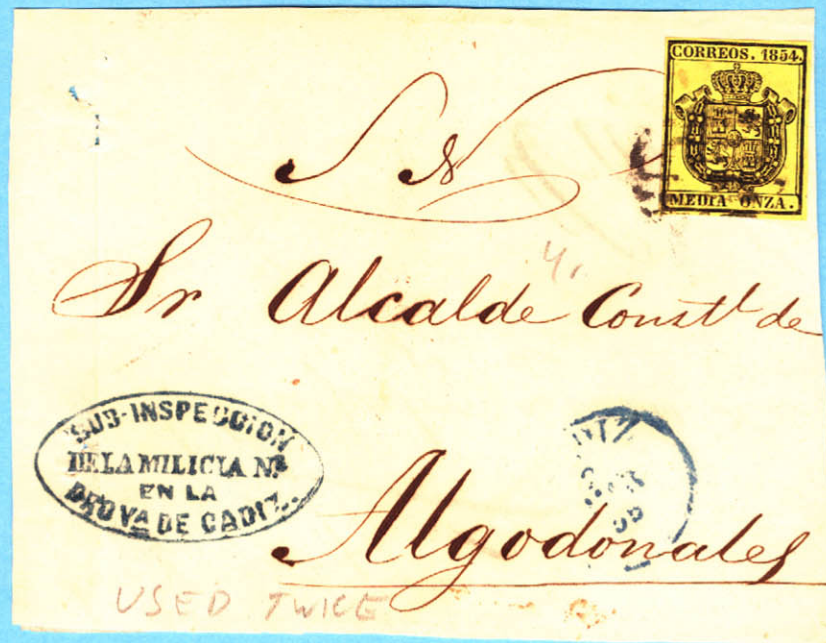 CORREOS. 1854.
MEDIA ONZA.
S N
Sr Alcalde Constl. de
SUB-INSPECCION
DE LA MILICIA Nl.
EN LA
PROVa. DE CADIZ.
Algodonales
USED TWICE